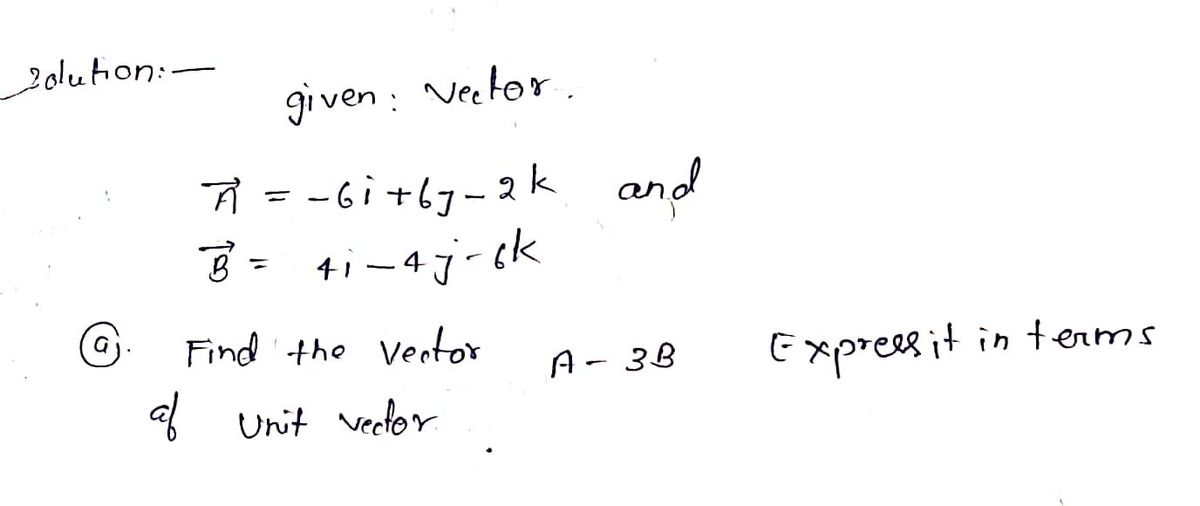 Solution:—
given: Vector.
A⃗ = -6i+6j-2k and
B⃗ = 4i-4j-6k
(a). Find the Vector A-3B Express it in terms
of Unit vector.